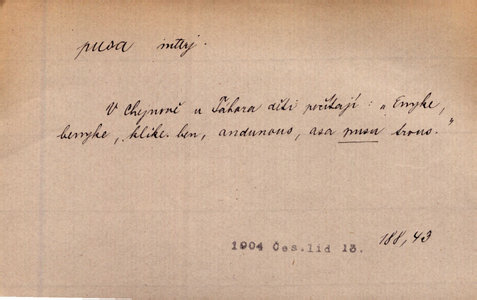 pusa mttj.
V Chejnově u Tábora děti počítají: „Enyke,
benyke, klike. ben, andunous, asa pusu trous."
1904 Čes.lid 13. 188,43